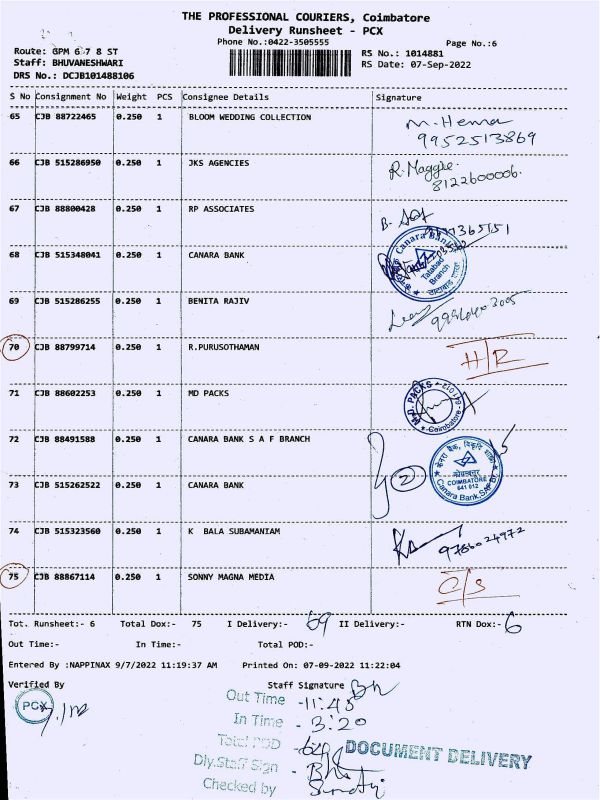 THE PROFESSIONAL COURIERS, Coimbatore
Delivery Runsheet - PCX
Phone No.:0422-3505555
Page No.:6
Route: GPM 6 7 8 ST
RS No.: 1014881
Staff: BHUVANESHWARI
RS Date: 07-Sep-2022
DRS No.: DCJB101488106
S No Consignment No Weight PCS Consignee Details Signature
65 CJB 88722465 0.250 1 BLOOM WEDDING COLLECTION M. Hema
9952513869
66 CJB 515286950 0.250 1 JKS AGENCIES R. Maggie.
8122600006.
67 CJB 88800428 0.250 1 RP ASSOCIATES
68 CJB 515348041 0.250 1 CANARA BANK
Canara Bank
Talabad
Branch
69 CJB 515286255 0.250 1 BENITA RAJIV
70 CJB 88799714 0.250 1 R.PURUSOTHAMAN H/R
71 CJB 88602253 0.250 1 MD PACKS
M.D. PACKS
Coimbatore
72 CJB 88491588 0.250 1 CANARA BANK S A F BRANCH
केनरा बैंक,
कोयम्बत्तूर
COIMBATORE
641 012
Canara Bank,
73 CJB 515262522 0.250 1 CANARA BANK 2
74 CJB 515323560 0.250 1 K BALA SUBAMANIAM 9786024972
75 CJB 88867114 0.250 1 SONNY MAGNA MEDIA C/S
Tot. Runsheet:- 6 Total Dox:- 75 I Delivery:- 69 II Delivery:- RTN Dox:- 6
Out Time:- In Time:- Total POD:-
Entered By :NAPPINAX 9/7/2022 11:19:37 AM Printed On: 07-09-2022 11:22:04
Verified By Staff Signature
PCX
Out Time - 11:45
In Time - 3:20
Total POD - 69
DOCUMENT DELIVERY
Dly.Staff Sign -
Checked by